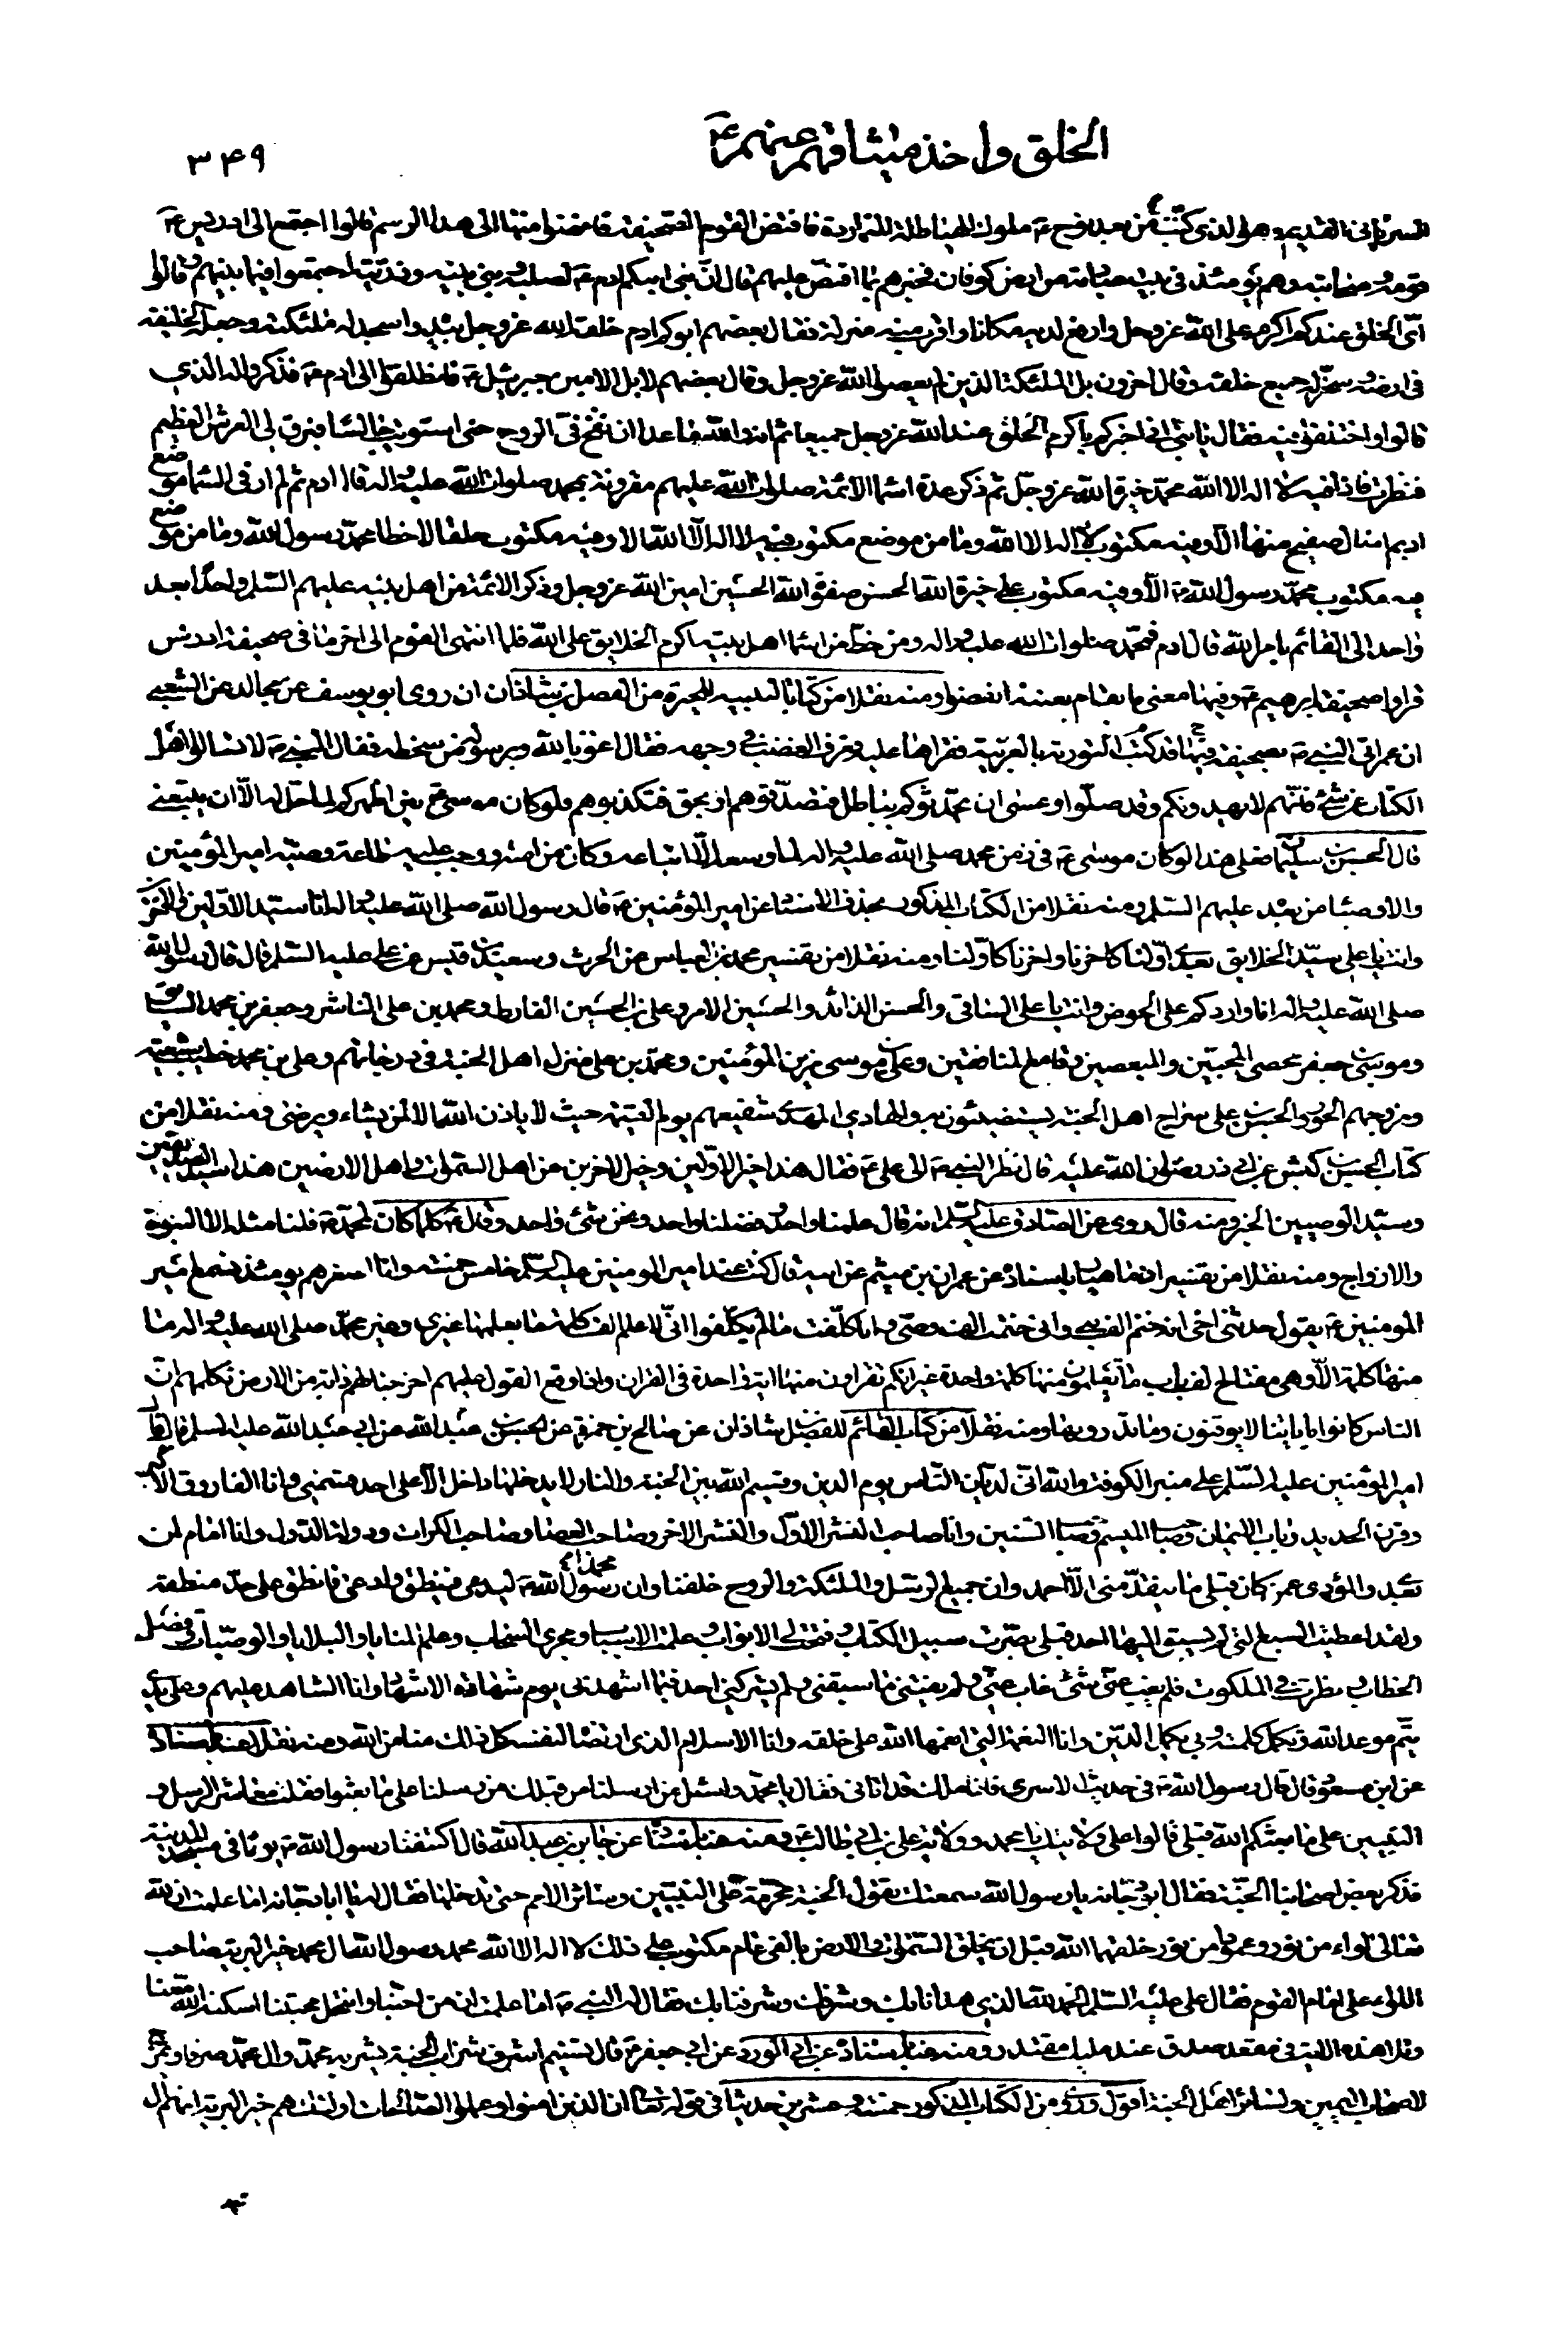 الخلق واخذ ميثاقهم عنهم ع ٣٤٩
السرياني القديم وهو الذي كتب من بعد نوح ع ملوك الهياطلة المتماردة فاقتص القوم الصحيفة فافضوا منها الى هذا الرسم قالوا اجتمع الى ادريس ع
قومه وصحابته وهم يومئذ في بيت عبادته من ارض كوفان فخبرهم بما اقتص عليهم قال ان بني ابيكم ادم ع لصلبه وبني بنيه وذريته اجتمعوا فيما بينهم وقالوا
اى الخلق عندكم اكرم على الله عز وجل وارفع لديه مكانا واقرب منه منزلة فقال بعضهم ابوكم ادم خلقه الله عز وجل بيده واسجد له ملئكته وجعله الخليفة
في ارضه وسخر له جميع خلقه وقال اخرون بل الملئكة الذين لم يعصوا الله عز وجل وقال بعضهم لا بل الامين جبرئيل ع فانطلقوا الى ادم ع فذكروا له الذي
قالوا واختلفوا فيه فقال يا بني اني اخبركم باكرم الخلق عند الله عز وجل جميعا ثم انه والله ما عدا ان نفخ في الروح حتى استويت جالسا فبرق لي العرش العظيم
فنظرت فاذا فيه لا اله الا الله محمد خيرة الله عز وجل ثم ذكر عدة اسماء الائمة صلوات الله عليهم مقرونة بمحمد صلوات الله عليه واله قال ادم ثم لم ار في السماء موضع
اديم او قال صفيح منها الا وفيه مكتوب لا اله الا الله وما من موضع مكتوب فيه لا اله الا الله الا وفيه مكتوب خلقا لا خطا محمد رسول الله وما من موضع
فيه مكتوب محمد رسول الله ص الا وفيه مكتوب علي خيرة الله الحسن صفوة الله الحسين امين الله عز وجل وذكر الائمة من اهل بيته عليهم السلم واحدا بعد
واحد الى القائم بامر الله قال ادم فمحمد صلوات الله عليه واله ومن خط من اسماء اهل بيته اكرم الخلايق على الله فلما انتهى القوم الى اخر ما في صحيفة ادريس
قراوا صحيفة ابرهيم ع وفيها معنى ما تقدم بعينه انفضوا ومنه نقلا من كتاب التنبيه للحيرة من الفضل بن شاذان ان روى ابو يوسف عن مجالد عن الشعبي
ان عمر اتى النبي ص بصحيفة فيها قد كتب التورية بالعربية فقراها عليه فعرف الغضب في وجهه فقال اعوذ بالله وبرسوله من سخطه فقال النبي ص لا تسالوا اهل
الكتاب عن شئ فانهم لا يهدونكم وقد ضلوا وعسى ان يحدثوكم بباطل فتصدقوهم او بحق فتكذبوهم فلو كان موسى ع بين اظهركم لما حل له الا ان يتبعني
قال الحسن بن سليمان فعلى هذا لو كان موسى ع في زمن محمد صلى الله عليه واله لما وسعه الا اتباعه وكان من امته ووجب عليه طاعة وصيه امير المؤمنين
والاوصياء من بعده عليهم السلم ومنه نقلا من الكتاب المذكور بحذف الاسناد عن امير المؤمنين ع قال رسول الله صلى الله عليه واله انا سيد الاولين والاخرين
وانت يا علي سيد الخلايق بعدي اولنا كاخرنا واخرنا كاولنا ومنه نقلا من تفسير محمد بن العباس عن الحرث وسعيد بن قيس عن علي عليه السلم قال قال رسول الله
صلى الله عليه واله انا واردكم على الحوض وانت يا علي الساقي والحسن الذائد والحسين الامر وعلي بن الحسين الفارط ومحمد بن علي الناشر وجعفر بن محمد السائق
وموسى بن جعفر محصي المحبين والمبغضين وقامع المنافقين وعلي بن موسى مزين المؤمنين ومحمد بن علي منزل اهل الجنة في درجاتهم وعلي بن محمد خطيب شيعته
ومزوجهم الحور والحسن بن علي سراج اهل الجنة يستضيئون به والهادي المهدي شفيعهم يوم القيمة حيث لا ياذن الله الا لمن يشاء ويرضى ومنه نقلا من
كتاب الحسين بن كبش عن ابي ذر رضوان الله عليه قال نظر النبي ص الى علي ع فقال هذا خير الاولين وخير الاخرين من اهل السموات واهل الارضين هذا سيد الصديقين
وسيد الوصيين الخبر ومنه قال روى عن الصادق عليه السلم انه قال علمنا واحد وفضلنا واحد ونحن شئ واحد وقال ع كلما كان لمحمد ص فلنا مثله الا النبوة
والازواج ومنه نقلا من تفسير ابن ماهيار باسناده عن عمران بن ميثم عن ابيه قال كنت عند امير المومنين عليه السلم خامس خمسة وانا اصغرهم يومئذ نسمع امير
المومنين ع يقول حدثني اخي انه ختم الف نبي واني ختمت الف وصي وانا كلفت ما لم يكلفوا اني لاعلم الف كلمة ما يعلمها غيري وغير محمد صلى الله عليه واله ما
منها كلمة الا وهي مفتاح الف باب ما تعلمون منها كلمة واحدة غير انكم تقراون منها اية واحدة في القران واذا وقع القول عليهم اخرجنا لهم دابة من الارض تكلمهم ان
الناس كانوا باياتنا لا يوقنون وما تدرونها ومنه نقلا من كتاب القائم للفضل بن شاذان عن صالح بن حمزة عن الحسن بن عبد الله عن ابي عبد الله عليه السلم قال قال
امير المؤمنين عليه السلم على منبر الكوفة والله اني لديان الناس يوم الدين وقسيم الله بين الجنة والنار لا يدخلها داخل الا على احد قسمي وانا الفاروق الاكبر
وقرن الحديد وباب الايمان وصاحب الميسم وصاحب السنين وانا صاحب النشر الاول والنشر الاخر وصاحب العصا وصاحب الكرات ودولة الدول وانا امام لمن
بعدي والمؤدي عمن كان قبلي ما يتقدمني الا احمد وان جميع الرسل والملئكة والروح خلفنا وان رسول الله ص ليدعى فينطق وادعى فانطق على حد منطقه
ولقد اعطيت السبع التي لم يسبق اليها احد قبلي بصرت سبيل الكتاب وفتحت لي الابواب وعلمت الاسباب ومجرى السحاب وعلم المنايا والبلايا والوصيات وفصل
الخطاب ونظرت في الملكوت فلم يعزب عني شئ غاب عني ولم يفتني ما سبقني ولم يشركني احد فيما اشهدني يوم شهادة الاشهاد وانا الشاهد عليهم وعلى يدي
يتم موعد الله وتكمل كلمته وبي يكمل الدين وانا النعمة التي انعمها الله على خلقه وانا الاسلام الذي ارتضاه لنفسه كل ذلك منا من الله ومنه نقلا عنه باسناده
عن ابن مسعود قال قال رسول الله ص في حديث الاسرى فاذا ملك قد اتاني فقال يا محمد واسئل من ارسلنا من قبلك من رسلنا على ما بعثوا فقلت معاشر الرسل و
النبيين على ما بعثكم الله قبلي قالوا على ولايتك يا محمد وولاية علي بن ابي طالب ع ومنه هنا باسناده عن جابر بن عبد الله قال اكتنفنا رسول الله ص يوما في مسجد المدينة
فذكر بعض اصحابنا الجنة فقال ابو دجانة يا رسول الله سمعتك تقول الجنة محرمة على النبيين وسائر الامم حتى تدخلها فقال له يا ابا دجانة اما علمت ان لله
تعالى لواء من نور وعمودا من نور خلقهما الله قبل ان يخلق السموات والارض بالفي عام مكتوب على ذلك لا اله الا الله محمد رسول الله ال محمد خير البرية صاحب
اللواء علي امام القوم فقال علي عليه السلم الحمد لله الذي هدانا بك وشرفك وشرفنا بك فقال له النبي ص اما علمت ان من احبنا وانتحل محبتنا اسكنه الله معنا
وتلا هذه الاية في مقعد صدق عند مليك مقتدر ومنه هنا باسناده عن ابي الورد عن ابي جعفر ع قال تسنيم اشرف شراب الجنة يشربه محمد وال محمد صرفا ويمزج
لاصحاب اليمين ولسائر اهل الجنة اقول وروى من الكتاب المذكور خمسة وعشرين حديثا في قوله تعالى ان الذين امنوا وعملوا الصالحات اولئك هم خير البرية انهم ال